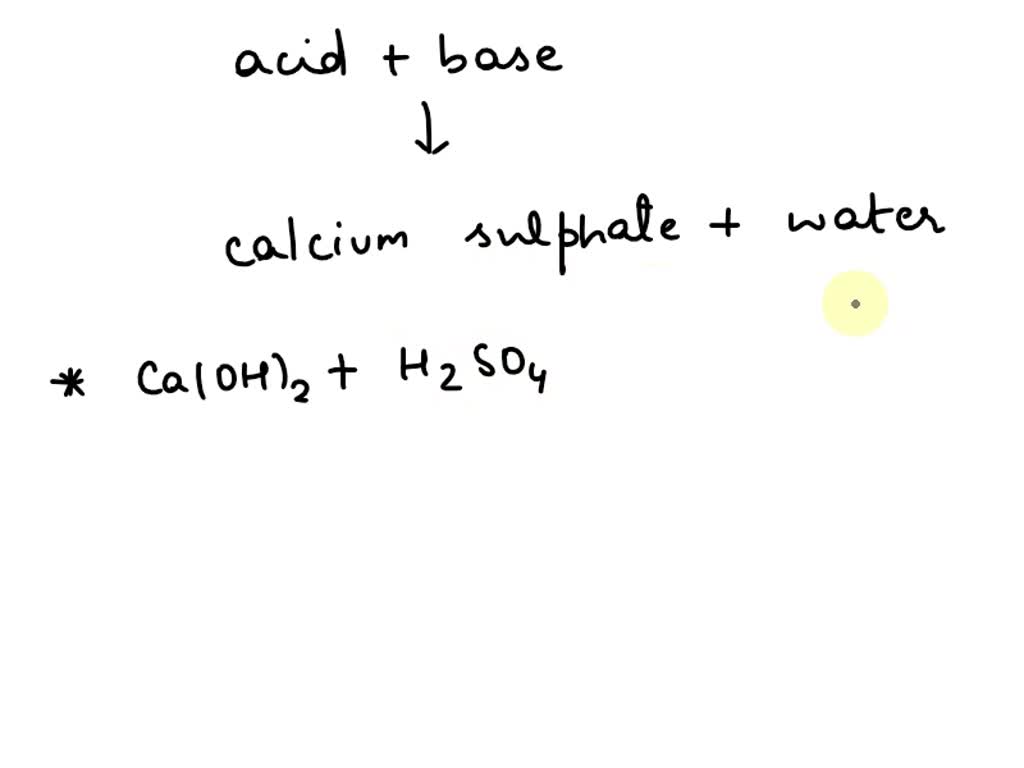 acid + base
↓
calcium sulphate + water
* Ca(OH)₂ + H₂SO₄